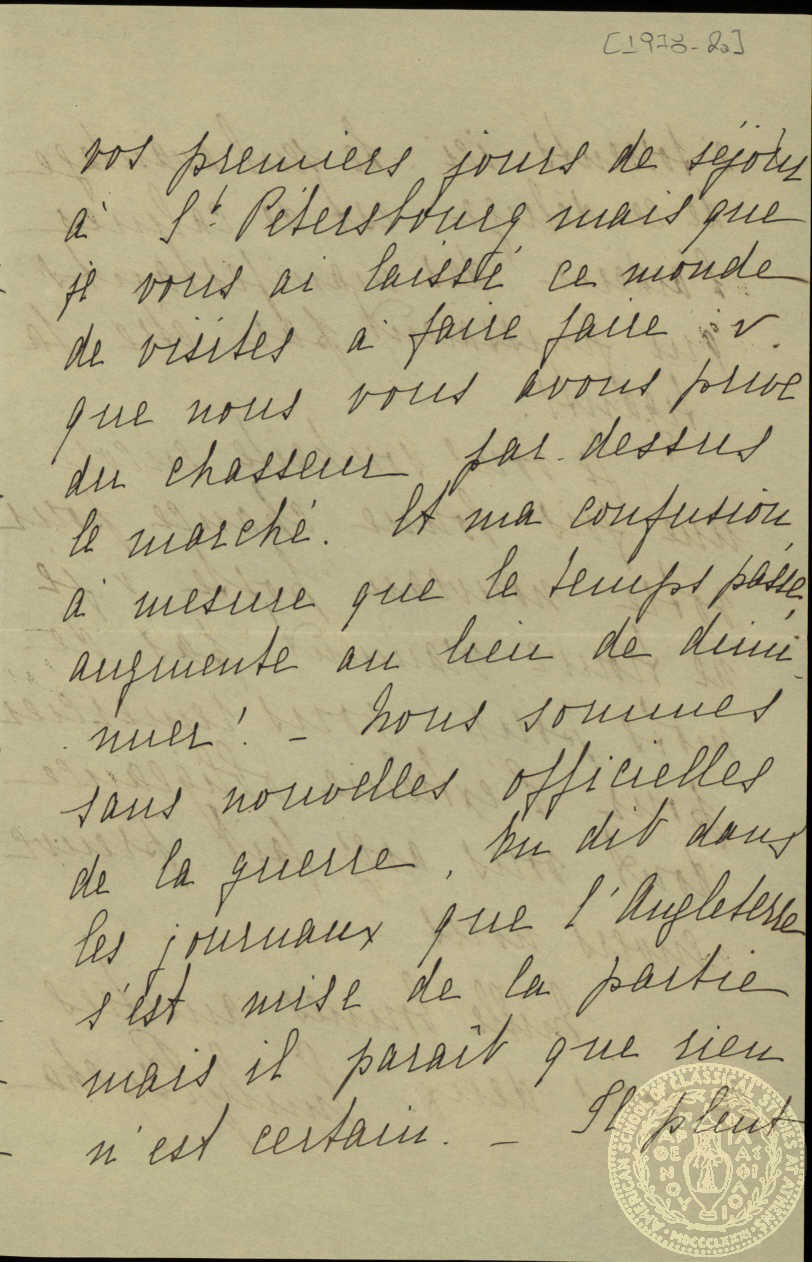 [1978-80]
vos premiers jours de séjour
à St. Pétersbourg mais que
je vous ai laissé ce monde
de visites à faire faire
que nous vous avons privé
du chasseur par-dessus
le marché. Et ma confusion,
à mesure que le temps passe,
augmente au lieu de dimi-
nuer! – Nous sommes
sans nouvelles officielles
de la guerre. On dit dans
les journaux que l'Angleterre
s'est mise de la partie
mais il paraît que rien
n'est certain. – Il pleut
AMERICAN SCHOOL OF CLASSICAL STUDIES AT ATHENS
MDCCCLXXXI